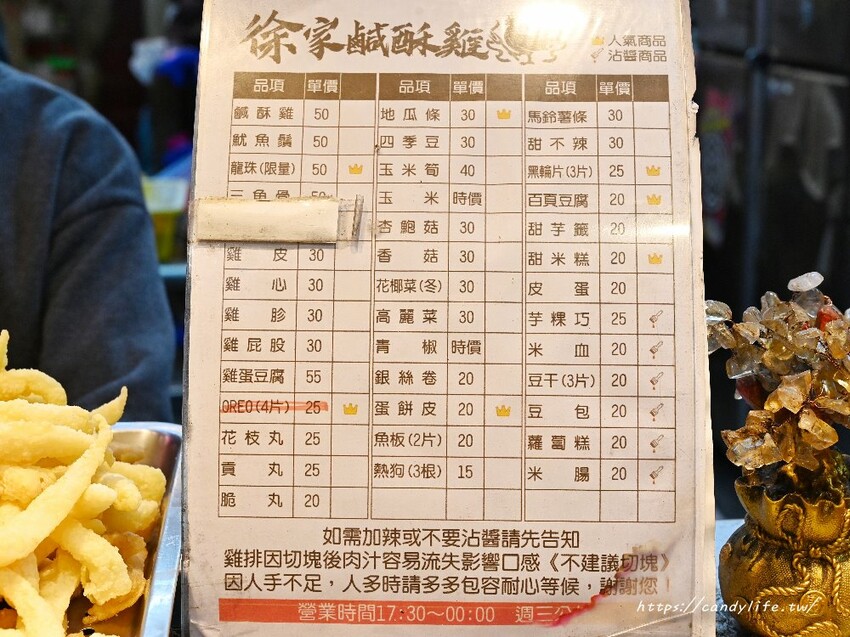 徐家鹹酥雞
人氣商品
沾醬商品
品項 單價 品項 單價 品項 單價
鹹酥雞 50 地瓜條 30 馬鈴薯條 30
魷魚鬚 50 四季豆 30 甜不辣 30
龍珠(限量) 50 玉米筍 40 黑輪片(3片) 25
三角骨 50 玉米 時價 百頁豆腐 20
杏鮑菇 30 甜芋籤 20
雞皮 30 香菇 30 甜米糕 20
雞心 30 花椰菜(冬) 30 皮蛋 20
雞胗 30 高麗菜 30 芋粿巧 25
雞屁股 30 青椒 時價 米血 20
雞蛋豆腐 55 銀絲卷 20 豆干(3片) 20
OREO(4片) 25 蛋餅皮 20 豆包 20
花枝丸 25 魚板(2片) 20 蘿蔔糕 20
貢丸 25 熱狗(3根) 15 米腸 20
脆丸 20
如需加辣或不要沾醬請先告知
雞排因切塊後肉汁容易流失影響口感《不建議切塊》
因人手不足，人多時請多多包容耐心等候，謝謝您！
營業時間17:30~00:00 週三公
https://candylife.tw/